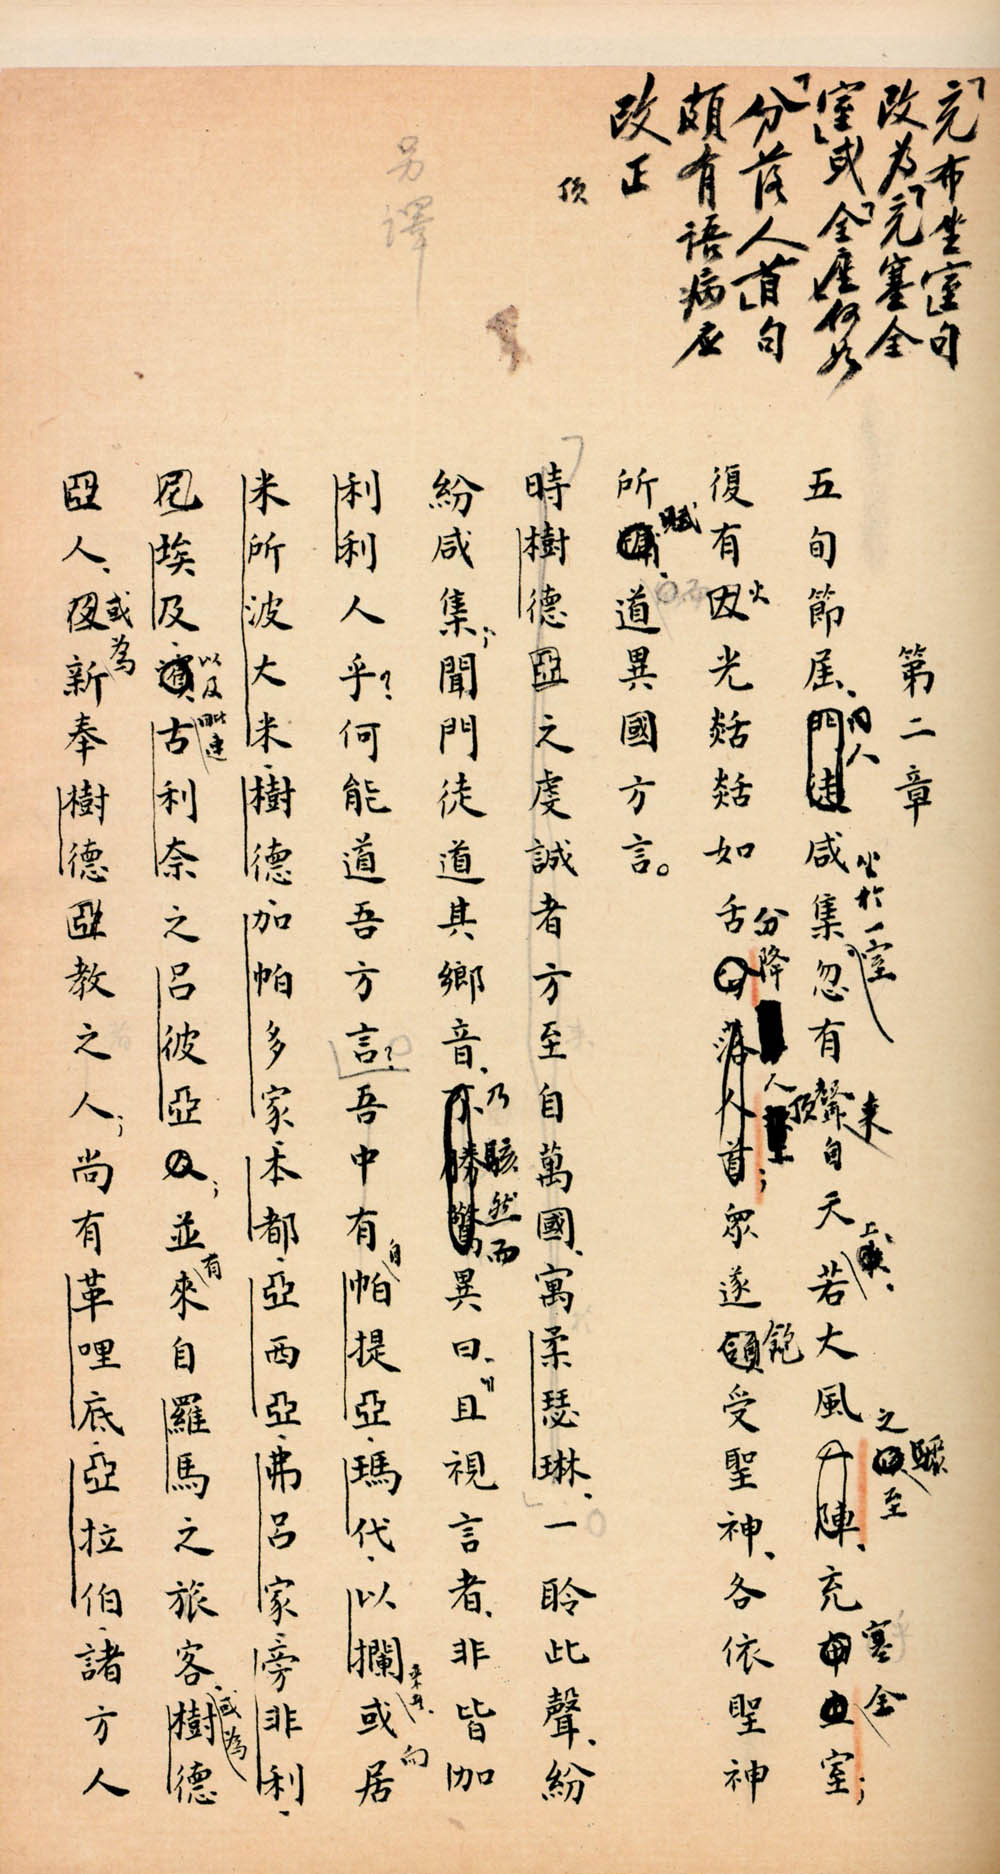 「充布坐室」句
改為「充塞全
室」或「全座」何如
「分落人首」句
頗有語病應
改正
頂
另譯
第二章
五旬節屆、門徒咸集忽有聲自天若大風一陣、充布坐室；
同人
坐於一室
來
上
之驟至
塞全
復有囙光燄燄如舌分落人首；眾遂領受聖神、各依聖神
火
分降
人頂
飽
所道異國方言。
賦
時樹德亞之虔誠者方至自萬國、寓柔瑟琳、一聆此聲、紛
紛咸集；聞門徒道其鄉音、不勝驚異曰、且視言者、非皆加
乃駭然而
利利人乎？何能道吾方言？吾中有帕提亞、瑪代、以攔或居
自
米所波大米、樹德、加帕多家、本都、亞西亞、弗呂家、旁非利、
向
埃及、古利奈之呂彼亞人；並來自羅馬之旅客樹德
以及毗連
有
或為
亞人、新奉樹德亞教之人；尚有革哩底、亞拉伯、諸方人
或為